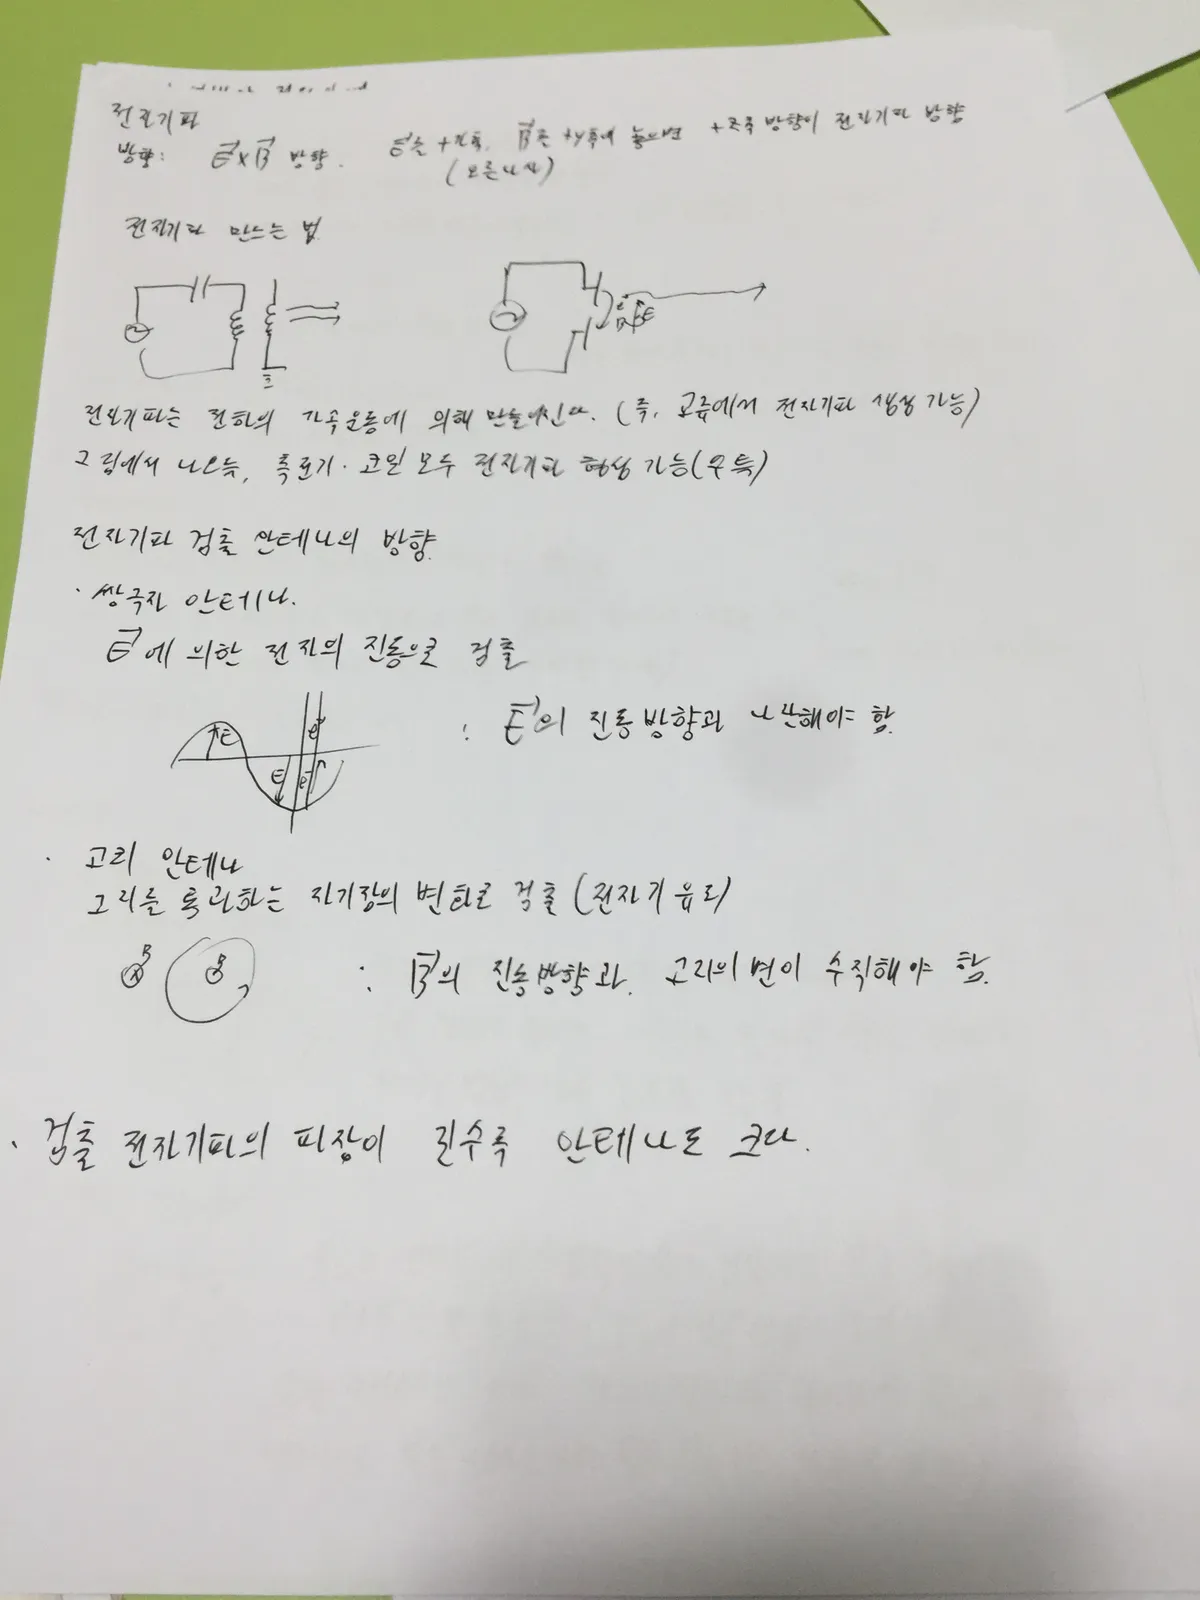 전자기파
방향: E×B 방향. E를 +x축, B를 +y축에 놓으면 +z축 방향이 전자기파 방향
(오른나사)
전자기파 만드는 법.
e E
B
전자기파는 전하의 가속운동에 의해 만들어진다. (즉, 교류에서 전자기파 생성 가능)
그림에서 나오듯, 축전기·코일 모두 전자기파 형성 가능
전자기파 검출 안테나의 방향.
· 쌍극자 안테나.
E에 의한 전자의 진동으로 검출
E e
E e
: E의 진동방향과 나란해야 함.
· 고리 안테나
고리를 통과하는 자기장의 변화로 검출 (전자기 유도)
B B
: B의 진동방향과, 고리의 면이 수직해야 함.
· 검출 전자기파의 파장이 길수록 안테나도 크다.